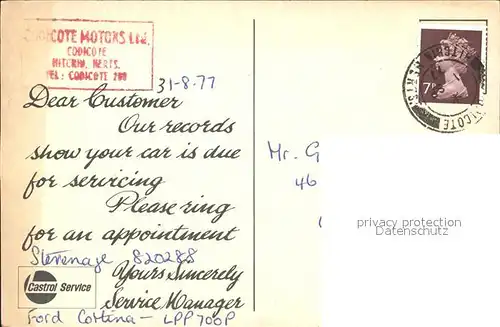 CODICOTE MOTORS LTD.
CODICOTE
HITCHIN, HERTS.
TEL: CODICOTE
31-8-77
Dear Customer
Our records
show your car is due
for servicing
Please ring
for an appointment
Stevenage 820288
Yours Sincerely
Service Manager
Castrol Service
Ford Cortina - LPP 700P
7P
Mr. G
46
privacy protection
Datenschutz